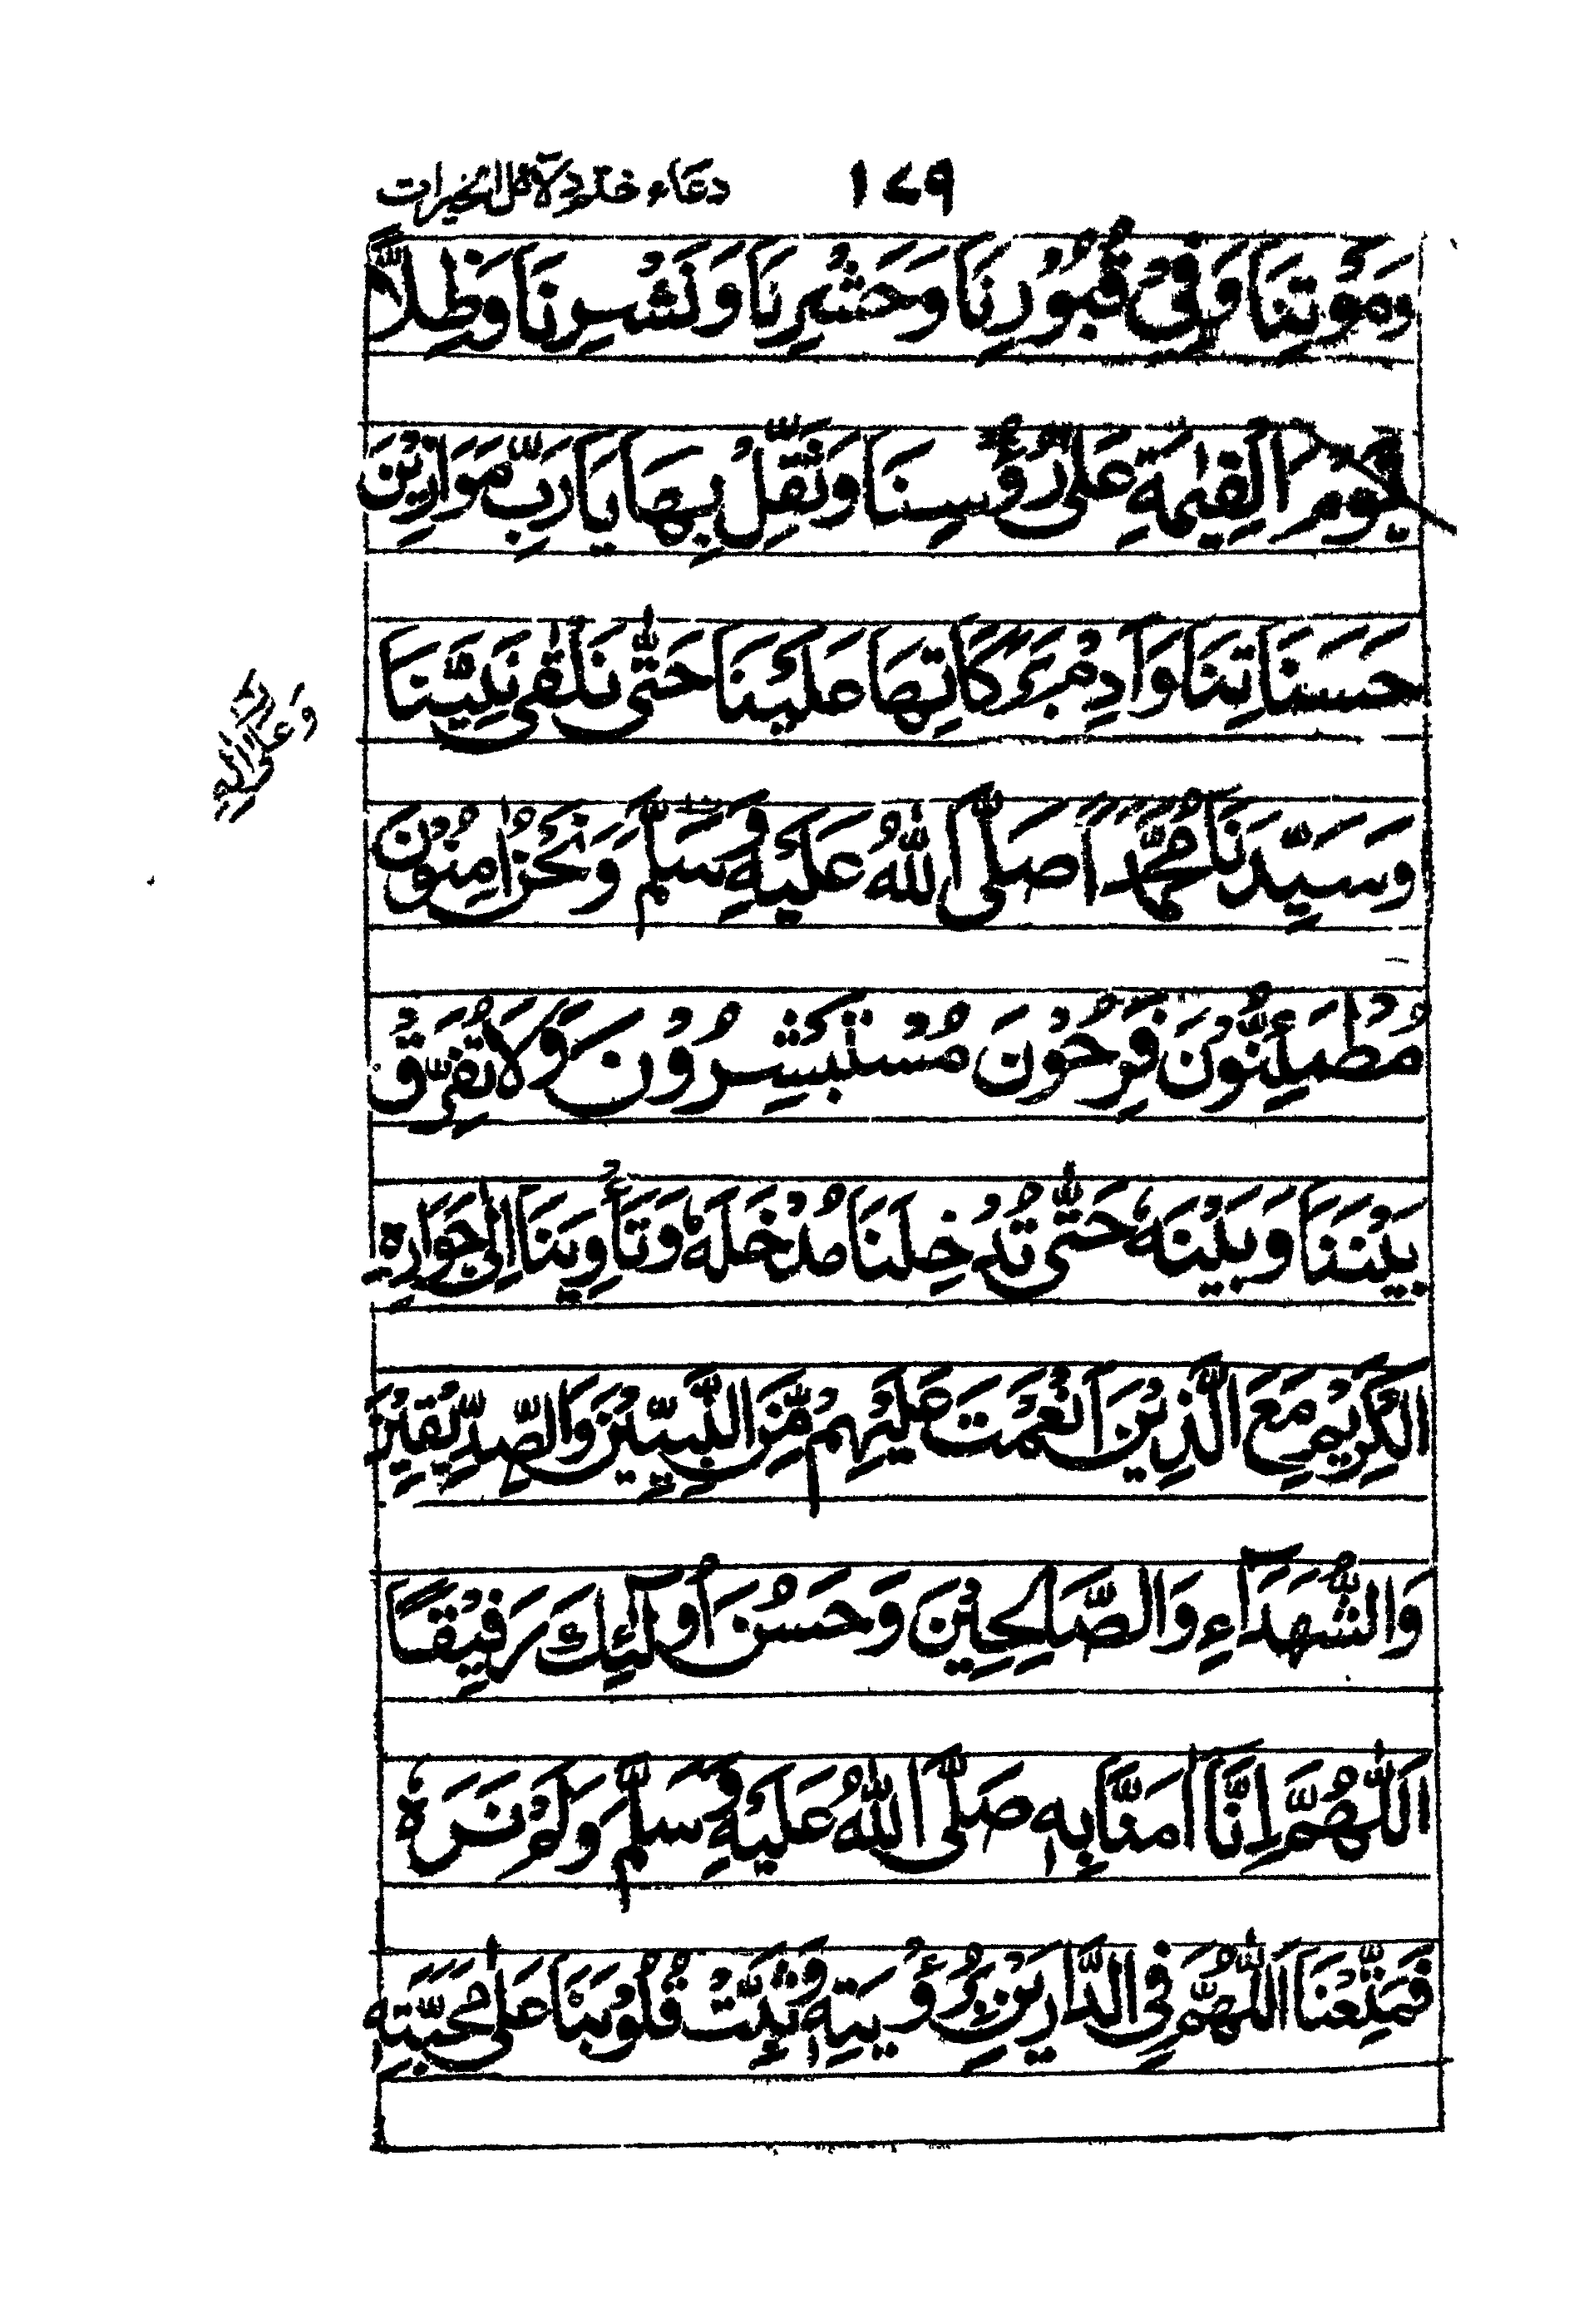 ١٧٩ دعاء ختم دلائل الخيرات
وَمَوْتِنَا وَفِيْ قُبُوْرِنَا وَحَشْرِنَا وَنَشْرِنَا وَظِلًّا
يَّوْمَ الْقِيٰمَةِ عَلٰى رُؤُسِنَا وَثَقِّلْ بِهَا يَا رَبِّ مَوَازِيْنَ
حَسَنَاتِنَا وَاَدِمْ بَرَكَاتِهَا عَلَيْنَا حَتّٰى نَلْقٰى نَبِيَّنَا
وَسَيِّدَنَا مُحَمَّدًا صَلَّى اللّٰهُ عَلَيْهِ وَسَلَّمَ وَنَحْنُ اٰمِنُوْنَ
وَعَلٰى اٰلِهٖ
مُطْمَئِنُّوْنَ فَرِحُوْنَ مُسْتَبْشِرُوْنَ وَلَا تُفَرِّقْ
بَيْنَنَا وَبَيْنَهٗ حَتّٰى تُدْخِلَنَا مُدْخَلَهٗ وَتَأْوِيَنَا اِلٰى جِوَارِهِ
الْكَرِيْمِ مَعَ الَّذِيْنَ اَنْعَمْتَ عَلَيْهِمْ مِّنَ النَّبِيّٖنَ وَالصِّدِّيْقِيْنَ
وَالشُّهَدَآءِ وَالصَّالِحِيْنَ وَحَسُنَ اُولٰٓئِكَ رَفِيْقًا
اَللّٰهُمَّ اِنَّا اٰمَنَّا بِهٖ صَلَّى اللّٰهُ عَلَيْهِ وَسَلَّمَ وَلَمْ نَرَهٗ
فَمَتِّعْنَا اَللّٰهُمَّ فِى الدَّارَيْنِ بِرُؤْيَتِهٖ وَثَبِّتْ قُلُوْبَنَا عَلٰى مَحَبَّتِهٖ